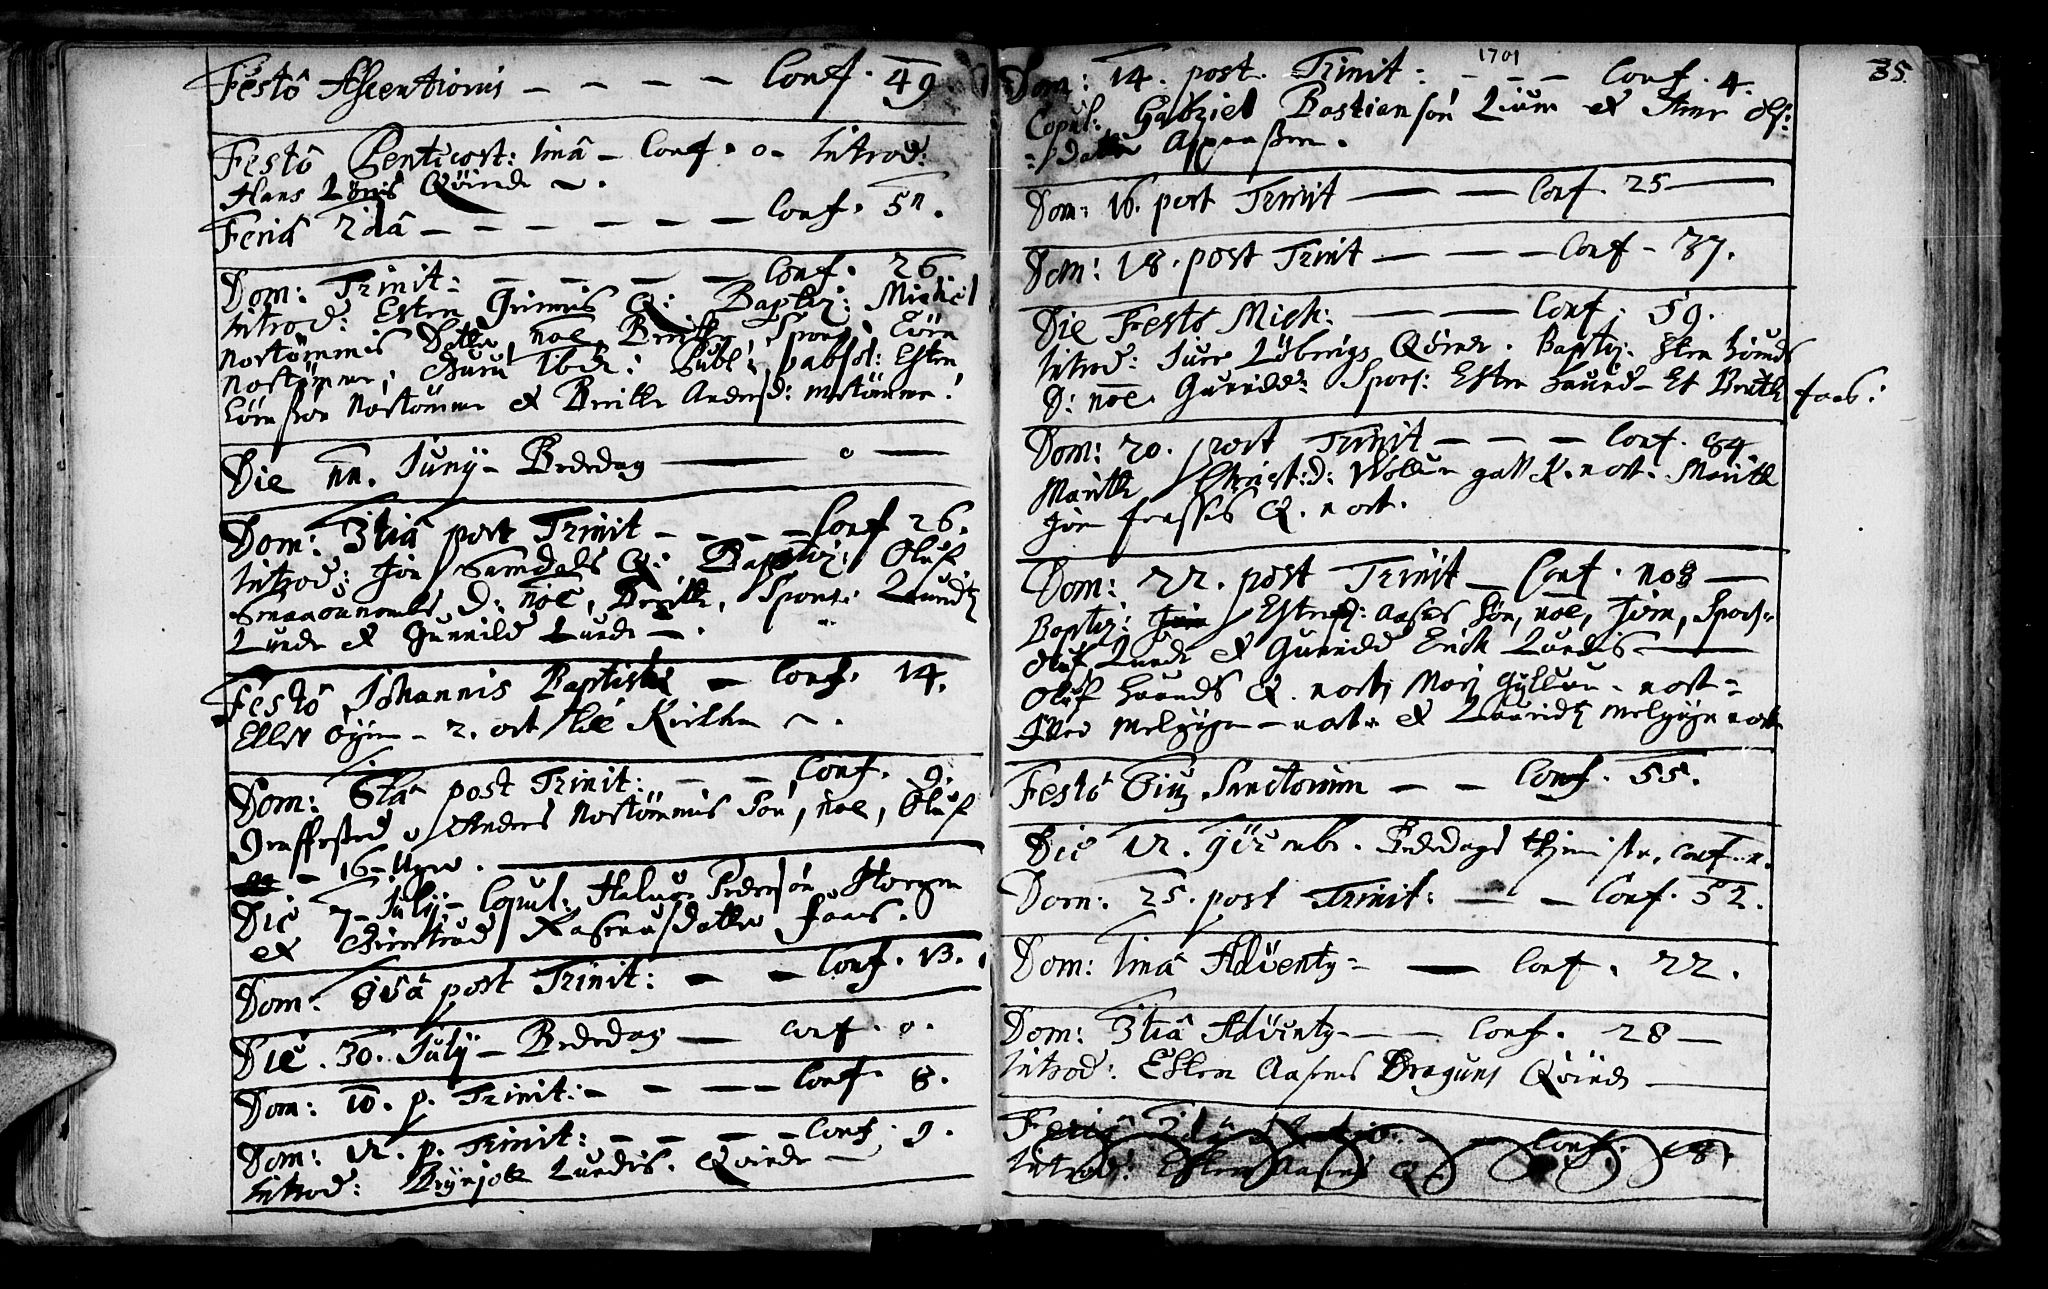 Festô Ascentionis – – – – Conf. 49.
Festô Penticost: 1mâ – Conf. 0 – Introd:
Hans Lönis Qvinde ~.
Feriâ 2dâ – – – – – – Conf. 51.
Dom: Trinit: – – – – – Conf. 26
Introd: Esten Grimnis Q: Baptiz: Michel
Nostömmis Datter, noe, Beritte, Spons:
Nostömme, Guru ibid: Publ: absol: Esten
Nostömme et Beritte Anders d: Nostömme.
Die 11. Junij – Bededag ——— 0 —
Dom: 3tiâ post Trinit – – – – Conf 26.
Introd: Jon Samdals Q: Baptiz: Oluf
D: noe, Beritte, Spons: Lauridz
Lunde et Gunnild Lunde —.
Festô Johannis Baptistæ – Conf. 14.
Ellef Öyen – 2. ort til Kirken ~.
Dom: 6tâ post Trinit: – – Conf. 9.
Anders Nostömmis Sön, noe, Oluf
– 16 – Uger.
Die 7 – Julij – Copul: Haluor Pedersön Horgen
et Giertrud Rasmusdatter Faas.
Dom: 8vâ post Trinit: – – Conf. 13.
Die. 30. Julij – Bededag — conf. 0.
Dom: 10. p. Trinit: – – — – Conf. 8.
Dom: 12. p. Trinit: – – – – Conf. 9.
Introd: Brynjold Lundis. Qvinde —
1701
35.
Dom: 14. post. Trinit: – – – Conf. 4.
Copul: Gabriel Bastiansön Lium et Ols:
=datter
Dom: 16. post Trinit —— — Conf. 25 ——
Dom: 18. post Trinit — — — Conf – 37.
Die Festo Mich: —— —— Conf. 59.
Introd: Iuer Löbergs Qvinde. Baptiz: Esten Haunds
D: noe. Gunnild: Spons: Esten Haund – Et Beritte Faas:
Dom: 20. post Trinit – – – Conf. 84
Maritte Christ: d: Wollum gaff K. n ort. Maritte
Jon Q. n ort.
Dom: 22. post Trinit — Conf. 108 —
Baptiz: Aases Sön, noe, Jörn, Spons:
Oluf Lunde et Gunnild Erich Lundis ——
Oluf Haunds Q. n ort, Mari Gyllum – n ort –
Iuer Melgjgen – n ort – et Lauridz Melgjgn n ort
Festô Oium Sanctorum – – Conf. 55.
Die 12. 9vemb. Bededags
Dom: 25. post Trinit: — – Conf. 52.
Dom: 1mâ Adventy – —— Conf. 22.
Dom: 3tiâ Adventy – — – Conf. 28 —
Introd: Esten Aasens Draguns Qvinde ——
Feriâ 2dâ Conf. 18.
Introd: Esten Aasens Q.